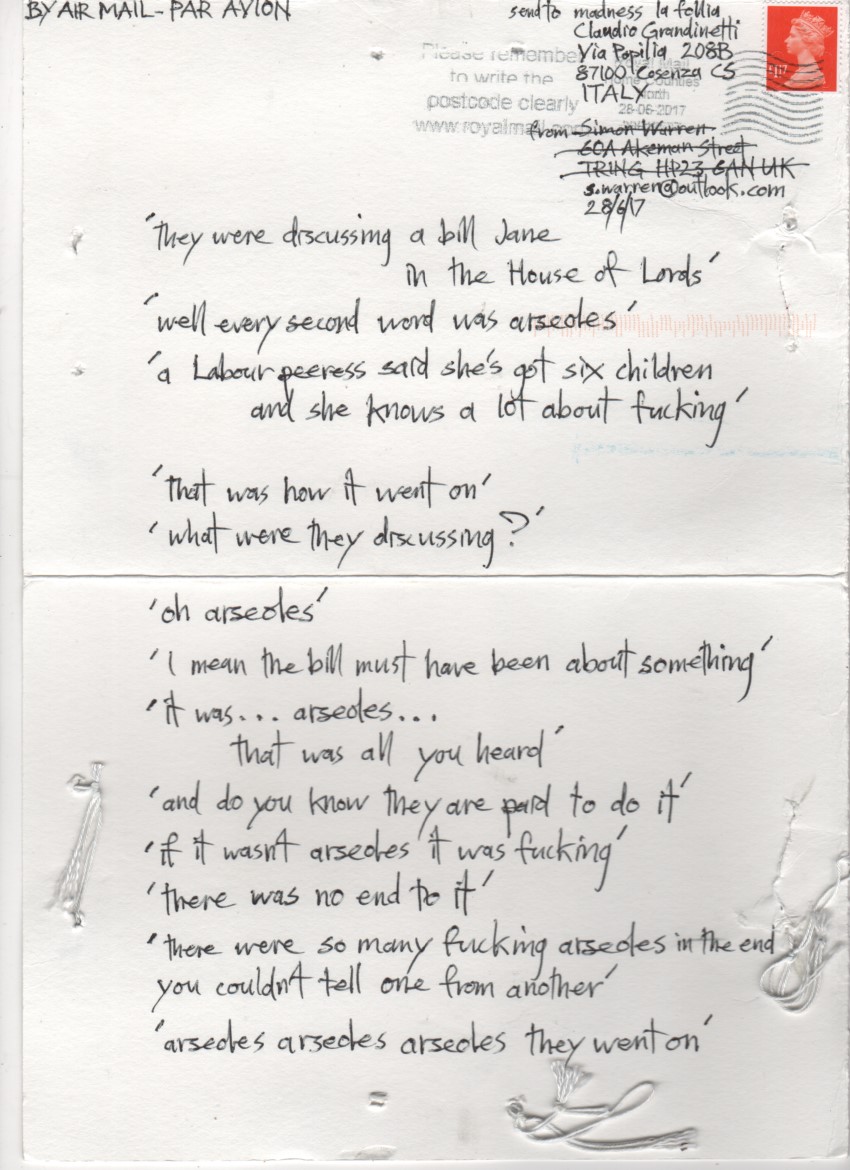 BY AIR MAIL - PAR AVION
send to madness la follia
Claudio Grandinetti
Via Popilia 208B
87100 Cosenza CS
ITALY
Please remember
to write the
postcode clearly
www.royalmail.com
Royal Mail
Home Counties
North
28-06-2017
from Simon Warren
60A Akeman Street
TRING HP23 6AN UK
s.warren@outlook.com
28/6/17
'they were discussing a bill Jane
in the House of Lords'
'well every second word was arseoles'
'a Labour peeress said she's got six children
and she knows a lot about fucking'
'that was how it went on'
'what were they discussing?'
'oh arseoles'
'I mean the bill must have been about something'
'it was... arseoles...
that was all you heard'
'and do you know they are paid to do it'
'if it wasn't arseoles it was fucking'
'there was no end to it'
'there were so many fucking arseoles in the end
you couldn't tell one from another'
'arseoles arseoles arseoles they went on'